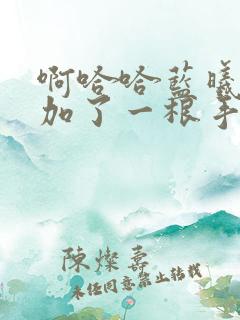 啊哈哈蓝曦
加了一根手
陳燦嘉
未经同意禁止转载